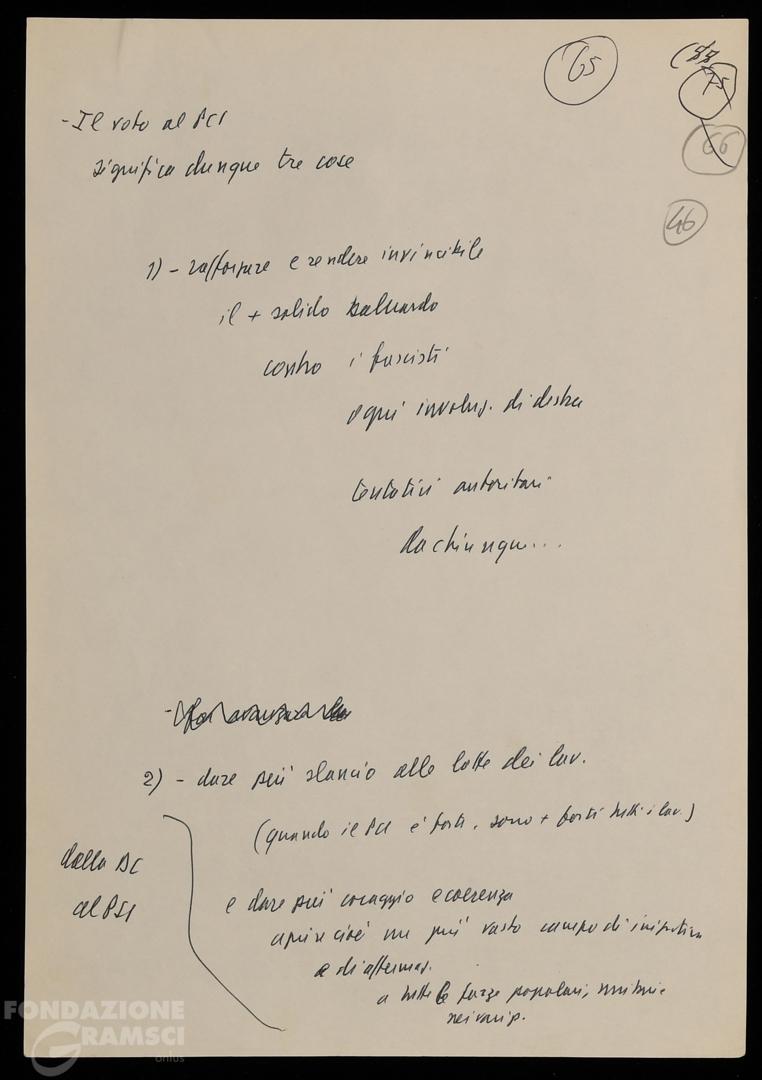 65
(88
75
66
46
- Il voto al PCI
significa dunque tre cose
1) - rafforzare e rendere invincibile
il + solido baluardo
contro i fascisti
ogni involuz. di destra
tentativi autoritari
da chiunque...
2) - dare più slancio alle lotte dei lav.
(quando il PCI è forte, sono + forti tutti i lav.)
dalla DC
al PSI
e dare più coraggio e coerenza
aprire cioè un più vasto campo di iniziativa
e di affermaz.
a tutte le forze popolari, unitarie
nei vari p.
FONDAZIONE
GRAMSCI
onlus